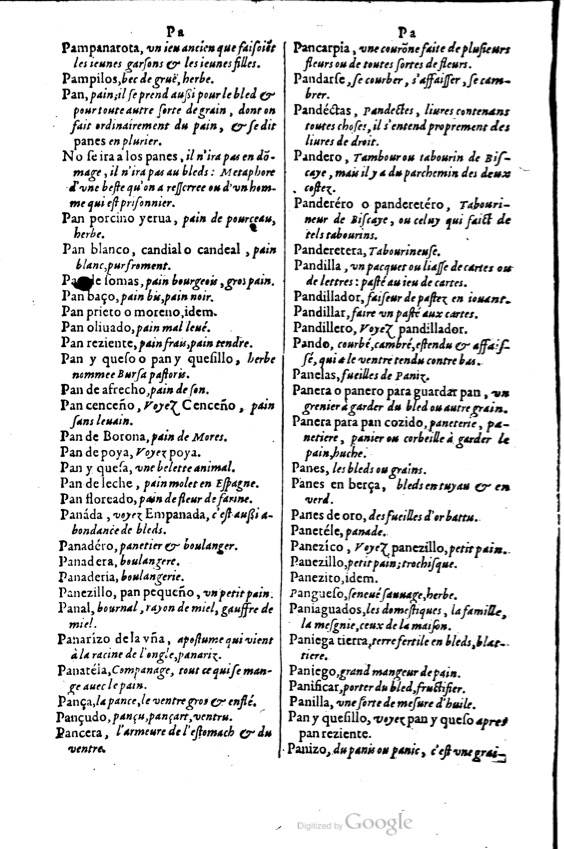 Pa
Pampanarota, vn ieu ancien que faisoiẽt
les ieunes garsons & les ieunes filles.
Pampilos, bec de gruë, herbe.
Pan, pain; il se prend aussi pour le bled &
pour toute autre sorte de grain, dont on
fait ordinairement du pain, & se dit
panes en plurier.
No se ira a los panes, il n'ira pas en dõ-
mage, il n'ira pas au bleds: Metaphore
d'vne beste qu'on a resserree ou d'vn hom-
me qui est prisonnier.
Pan porcino yerua, pain de pourceau,
herbe.
Pan blanco, candial o candeal, pain
blanc, pur froment.
de somas, pain bourgeois, gros pain.
Pan baço, pain bis, pain noir.
Pan prieto o moreno, idem.
Pan oliuado, pain mal leué.
Pan reziente, pain frais, pain tendre.
Pan y queso o pan y quesillo, herbe
nommee Bursa pastoris.
Pan de afrecho, pain de son.
Pan cenceño, Voyez Cenceño, pain
sans leuain.
Pan de Borona, pain de Mores.
Pan de poya, Voyez poya.
Pan y quesa, vne belette animal.
Pan de leche, pain molet en Espagne.
Pan floreado, pain de fleur de farine.
Panáda, voyez Empanada, c'est aussi a-
bondance de bleds.
Panadéro, panetier & boulanger.
Panadera, boulangere.
Panaderia, boulangerie.
Panezillo, pan pequeño, vn petit pain.
Panal, bournal, rayon de miel, gauffre de
miel.
Panarizo de la vña, apostume qui vient
à la racine de l'ongle, panariz.
Panatéla, Companage, tout ce qui se man-
ge auec le pain.
Pança, la pance, le ventre gros & enflé.
Pançudo, pançu, pançart, ventru.
Pancera, l'armeure de l'estomach & du
ventre.
Pa
Pancarpia, vne courõne faite de plusieurs
fleurs ou de toutes sortes de fleurs.
Pandarse, se courber, s'affaisser, se cam-
brer.
Pandéctas, Pandectes, liures contenans
toutes choses, il s'entend proprement des
liures de droit.
Pandero, Tambour ou tabourin de Bis-
caye, mais il y a du parchemin des deux
costez.
Panderéro o panderetéro, Tabouri-
neur de Biscaye, ou celuy qui faict de
tels tabourins.
Panderetera, Tabourineuse.
Pandilla, vn pacquet ou liasse de cartes ou
de lettres: pasté au ieu de cartes.
Pandillador, faiseur de pastez en iouant.
Pandillar, faire vn pasté aux cartes.
Pandillero, Voyez pandillador.
Pando, courbé, cambré, estendu & affais-
sé, qui a le ventre tendu contre bas.
Panelas, fueilles de Paniz.
Panera o panero para guardar pan, vn
grenier à garder du bled ou autre grain.
Panera para pan cozido, paneterie, pa-
netiere, panier ou corbeille à garder le
pain, huche.
Panes, les bleds ou grains.
Panes en berça, bleds en tuyau & en
verd.
Panes de oro, des fueilles d'or battu.
Panetéle, panade.
Panezico, Voyez panezillo, petit pain.
Panezillo, petit pain; trochisque.
Panezito, idem.
Pangueso, seneué sauuage, herbe.
Paniaguados, les domestiques, la famille,
la mesgnie, ceux de la maison.
Paniega tierra, terre fertile en bleds, blat-
tiere.
Paniego, grand mangeur de pain.
Panificar, porter du bled, fructifier.
Panilla, vne sorte de mesure d'huile.
Pan y quesillo, voyez pan y queso apres
pan reziente.
Panizo, du panis ou panic, c'est vne grai-
Digitized by Google